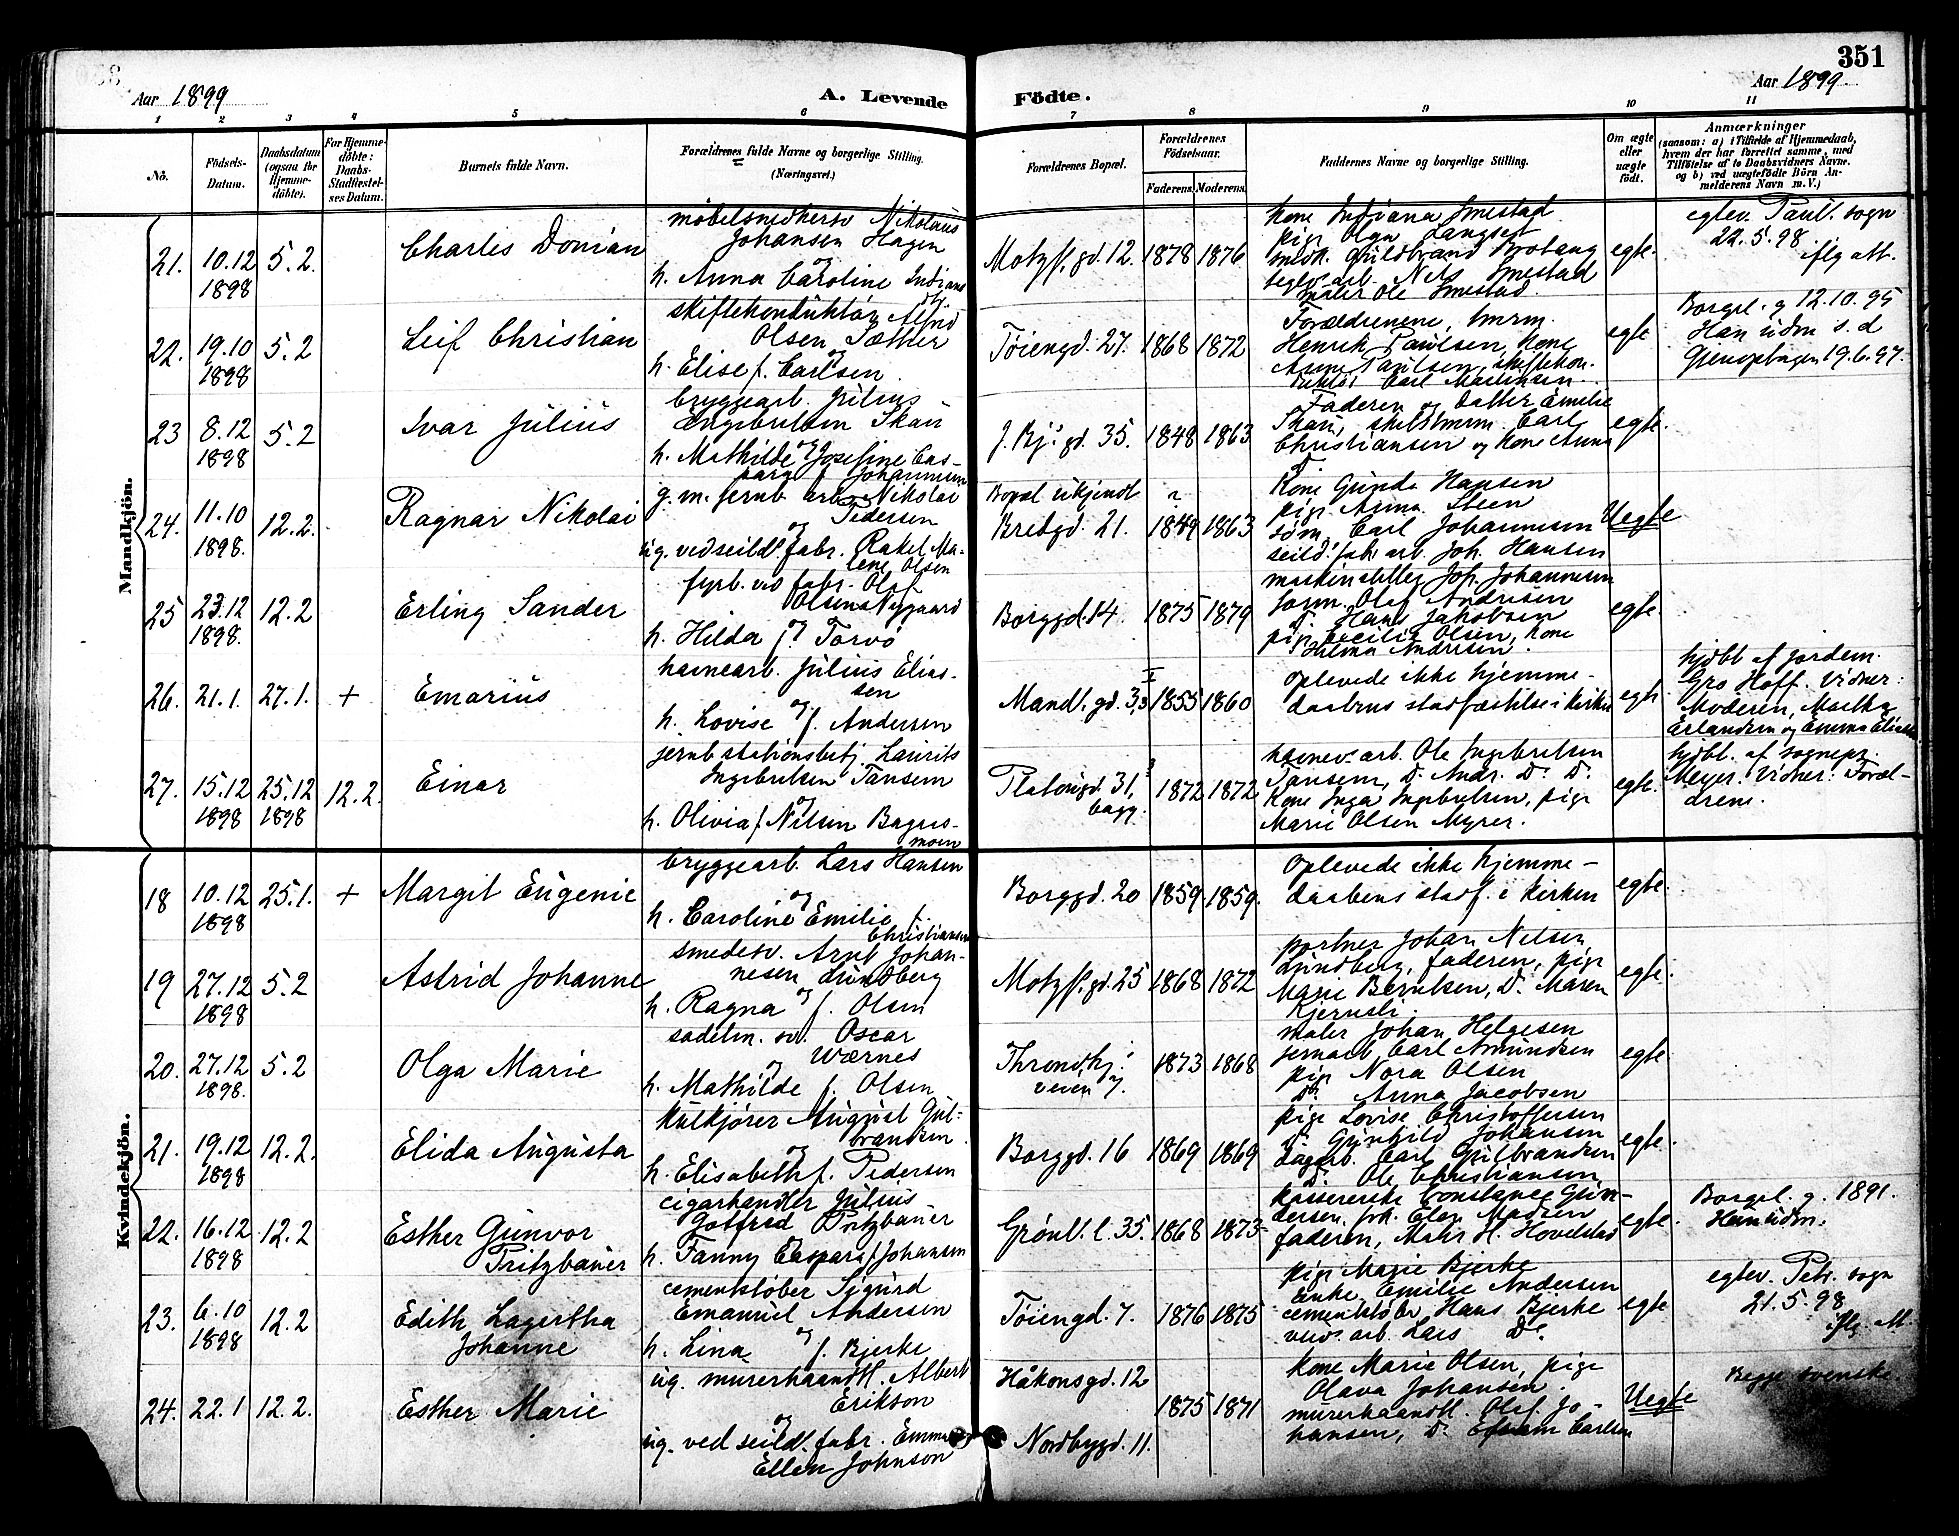 351
Aar 1899
A. Levende
Födte.
Aar 1899
1 2 3 4 5 6 7 8 9 10 11
No.
Födsels-Datum.
Daabsdatum (ogsaa for Hjemmedöbte).
For Hjemmedöbte: Daabs-Stadfæstelses Datum.
Barnets fulde Navn.
Forældrenes fulde Navne og borgerlige Stilling. (Næringsvei.)
Forældrenes Bopæl.
Forældrenes Födselsaar.
Faderens. Moderens.
Faddernes Navne og borgerlige Stilling.
Om ægte eller uægte födt.
Anmærkninger
(saasom: a) i Tilfælde af Hjemmedaab, hvem der har forrettet samme, med Tilföielse af to Daabsvidners Navne, og b) ved uægtefödte Börn Anmelderens Navn m. V.)
Mandkjön.
21. 10.12 1898 5.2.
Charles Donian
möbelsnedkersv Nikolaus
Johansen Hagen
og
h. Anna Caroline
Motzf. gd. 12. 1878 1876
Kone Indiana Smestad
pige Olga Langset
snedk. Guldbrand Brotang
teglv. arb. Nels Smestad
maler Ole Smestad.
egte.
egtev. Paul. sogn
22.5.98.
iflg att.
22. 19.10 1898 5.2
Leif Christian
skiftekonduktör Alfred
Olsen Sæther
og
h. Elise f. Carlsen
Töiengd. 27. 1868 1872
Forældrenene, tmrm.
Henrik Paulsen, Kone
Anne Paulsen, skiftekon-
duktör Carl Martinsen
egte
Borgel. g 12.10.95
Han udm s. d
Gjenoptagen 19.6.97.
23 8.12 1898 5.2
Ivar Julius
bryggearb. Julius
Engebretsen Skau
og
h. Mathilde Josefine Cas-
para f. Johannesen
J. Bj. gd. 35. 1848 1863
Faderen og datter Emilie
Skau, skiltmrm. Carl
Christiansen og Kone Anna
egte.
24. 11.10 1898. 12.2.
Ragnar Nikolai
g. m. jernb. arb. Nikolai
Pedersen
og
ug. ved seild. fabr. Rakel Ma-
lene Olsen
Bopæl ukjendt
Bredgd. 21. 1849 1863
Kone Gunda Hansen
pige Anna Steen
söm. Carl Johannesen
seild. fabr. arb. Joh. Hansen
Uegte
25 23.12 1898. 12.2
Erling Sander
fyrb. ved fabr. Olaf
Olsen Nygaard
og
h. Hilda f. Torvö
Borggd. 14. 1875 1879
maskinstiller Joh. Johannesen
form. Olaf Andresen
Do. Hans Jakobsen
pige Cecilie Olsen, Kone
Hilma Andresen.
egte.
26. 21.1. 27.1. +
Emarius
havnearb. Julius Elias-
sen
og
h. Lovise f. Andersen
Mandl. gd. 3, 1855 1860
oplevede ikke hjemme-
daabens stadfæstelse i Kirken
egte
hjdbt af jordem.
Gro Hoff. Vidner:
Moderen, Martha
Erlandsen og Emma
27. 15.12 1898 25.12 1898 12.2.
Einar
jernb stationsbetj. Laurits
Ingebretsen Tansem
og
h. Olivia f. Nilsen Bagaas-
moen
Platousgd. 31, 1872 1872
bagg.
havnev. arb. Ole Ingebretsen
Tansem, Do. Andr. Do. Do.
Kone Inga Ingebretsen, pige
Marie Olsen Myrer.
egte.
hjdbt. af sognepr.
Meyer. Vidner: Foræl-
drene.
Kvindekjön.
18 10.12 1898 25.1. +
Margit Eugenie
bryggearb. Lars Hansen
og
h. Caroline Emilie f.
Christiansen
Borggd. 20 1859 1859.
Oplevede ikke hjemme-
daabens stadf. i Kirken
egte.
19 27.12 1898 5.2
Astrid Johanne
smedesv. Arnt Johan-
nesen Lundberg
og
h. Ragna f. Olsen
Motzf. gd. 25 1868 1872
portner Johan Nilsen
Lundberg, faderen, pige
Marie Berntsen, Do. Maren
Kjernsli.
egte.
20. 27.12 1898. 5.2
Olga Marie
sadelm. sv. Oscar
Wærnes
og
h. Mathilde f. Olsen
Throndhj.
veien 7. 1873 1868
maler Johan Helgesen
jernarb. Carl Amundsen
pige Nora Olsen
Do. Anna Jacobsen
egte.
21. 19.12 1898 12.2.
Elida Augusta
Kulkjörer August Gul-
brandsen
og
h. Elisabeth f. Pedersen
Borggd. 16 1869 1869
pige Lovise Christoffersen
Do. Gunhild Johansen
dagarb. Carl Gulbrandsen
Do. Ole Christiansen
egte.
22. 16.12 1898 12.2
Esther Gunvor
Pritzbauer
cigarhandler Julius
Gotfred Pritzbauer
h. Fanny Caspara f. Johansen
Grönl. l. 35. 1868 1873
Kassererske Constance Gun-
dersen, frk. Elen Madsen
faderen, Mahr H. Hovelstad
egte.
Borgel. g. 1891.
Han udm.
23. 6.10 1898 12.2
Edith Lagertha
Johanne
cementstöber Sigurd
Emanuel Andersen
og
h. Lina f. Bjerke
Töiengd. 7. 1876 1875
pige Marie Bjerke
Enke Emilie Andersen
cementstöbr. Hans Bjerke
arb. Lars Do.
egte
egtev. Petr. sogn
21.5.98
iflg. att.
24. 22.1 12.2.
Esther Marie
ug. murerhaandtl. Albert
Erikson
og
ug. ved seild. fabr. Emma
Ellen Johnson
Håkonsgd. 12
Nordbygd. 11. 1875 1871
Kone Marie Olsen, pige
Olava Johansen.
murerhaandtl. Olaf Jo-
hansen, Do. Efraim Carlsen
Uegte
Begge svenske